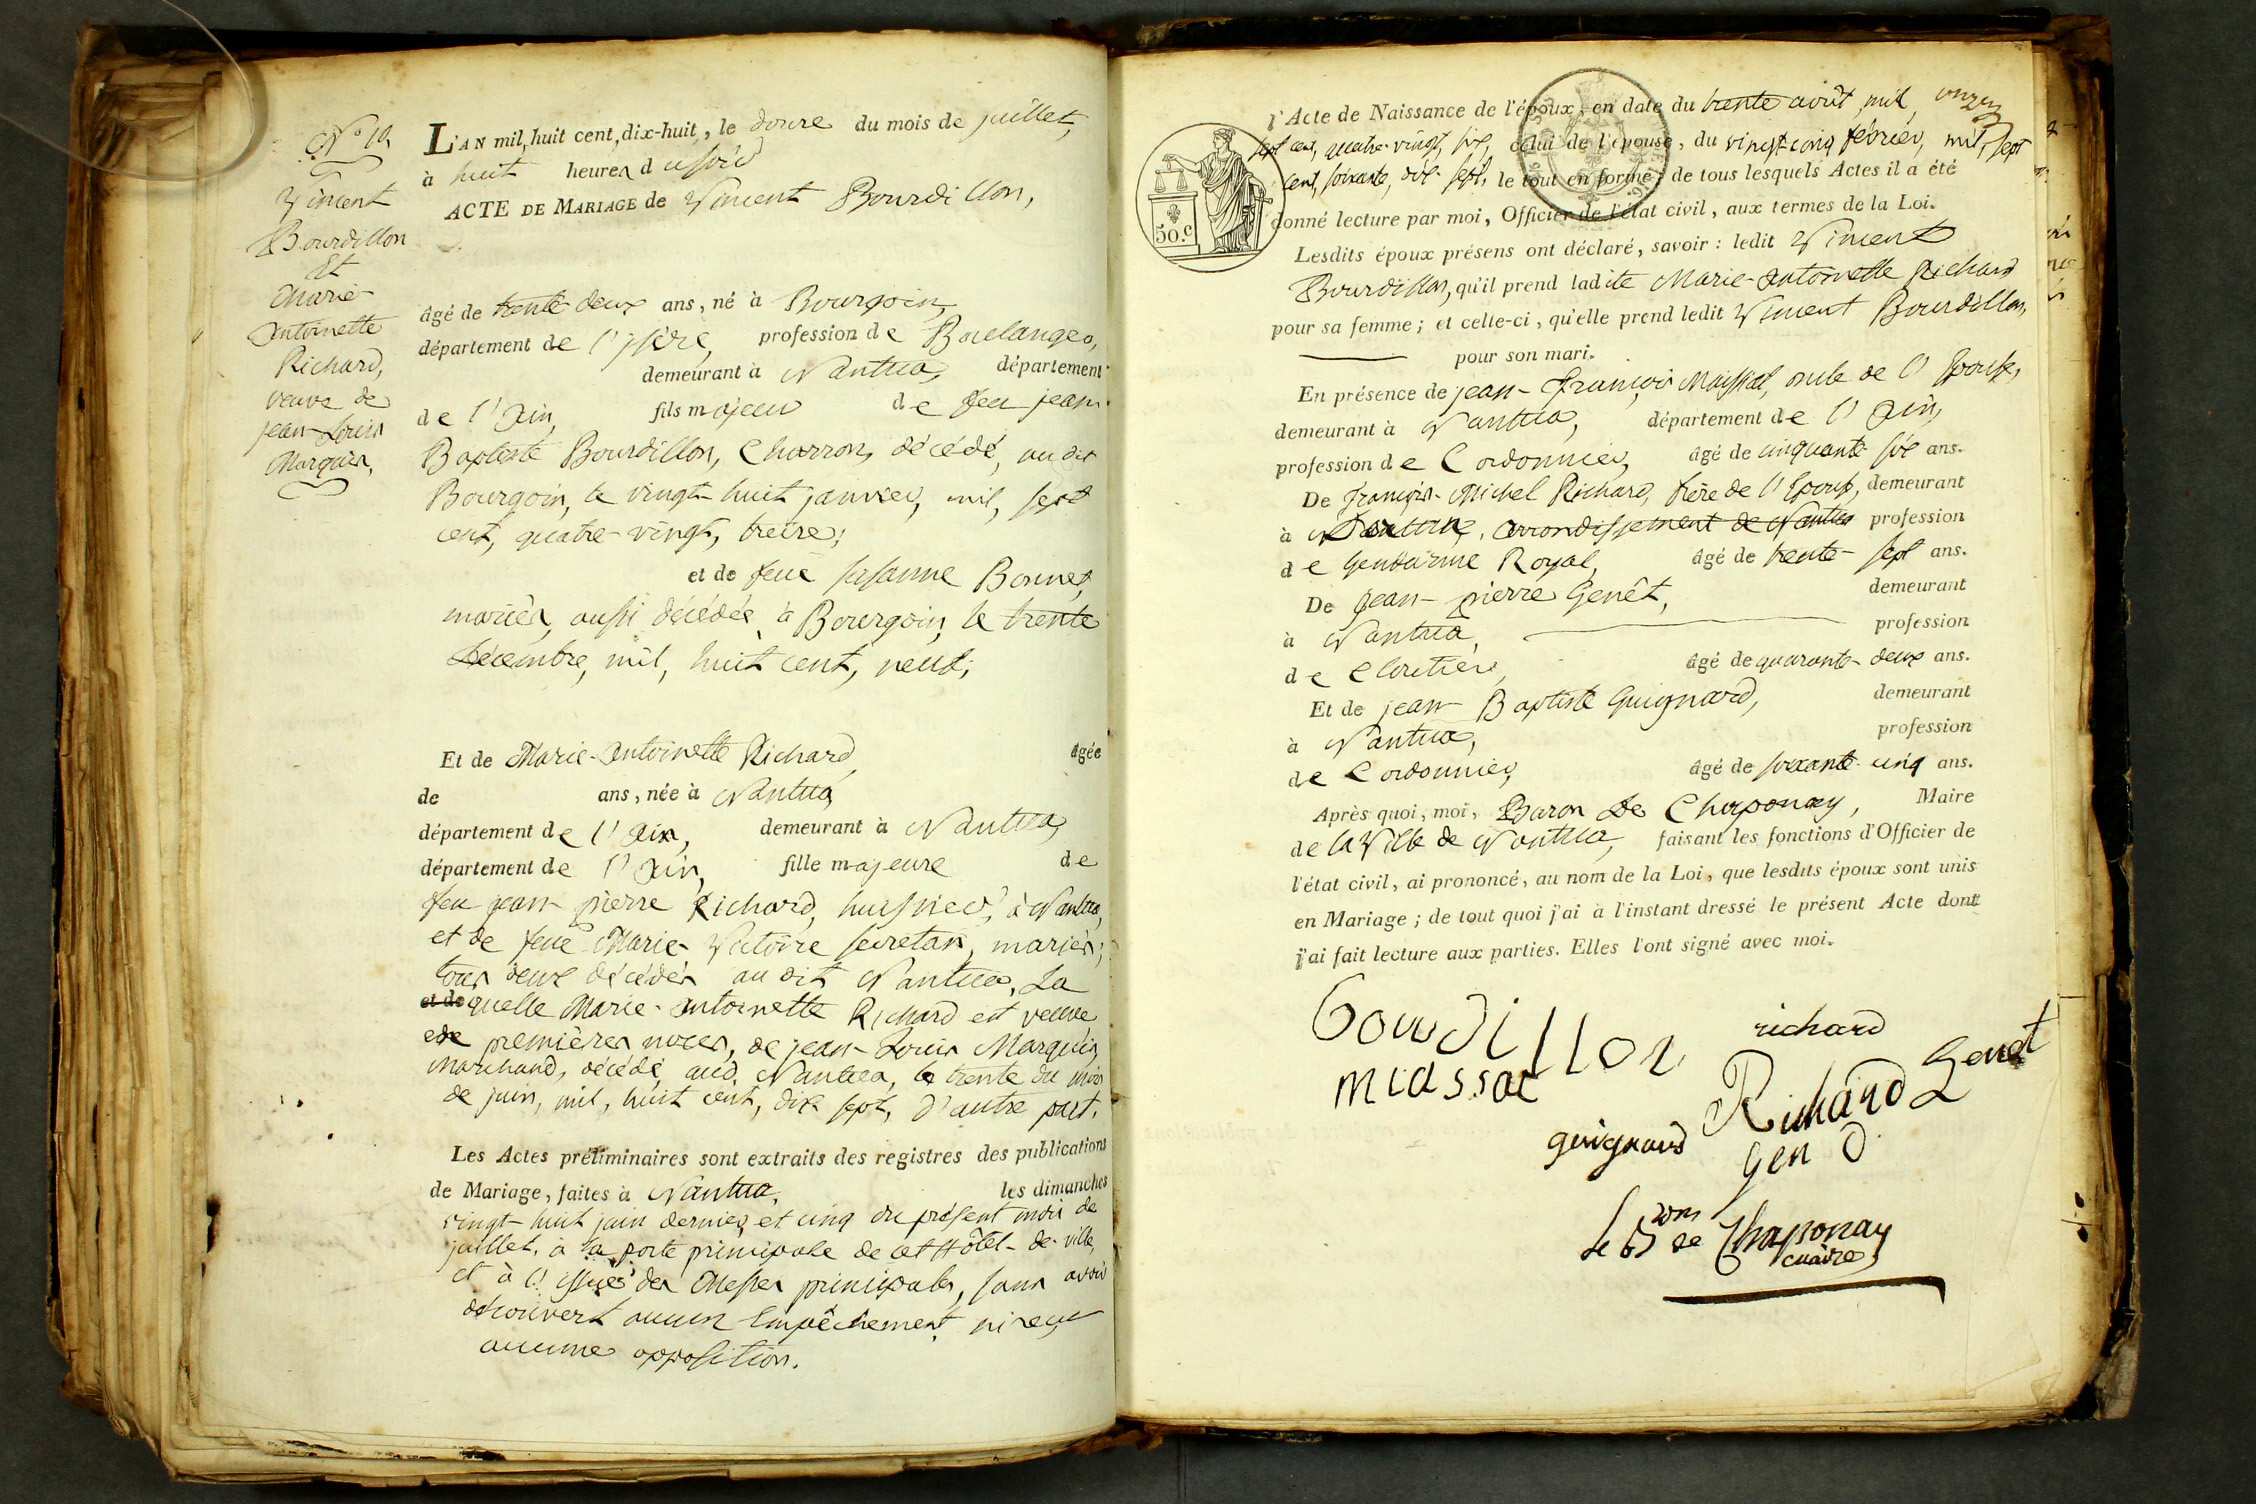 N.º 10.
Vincent
Bourdillon
Et
Marie-
Antoinette
Richard,
veuve de
jean-Louis
Marquis,
L'AN mil, huit cent, dix-huit, le douze du mois de juillet,
à huit heures du soir
ACTE DE MARIAGE de Vincent Bourdillon,
âgé de trente deux ans, né à Bourgoin,
département de l'isère, profession de Boulanger,
demeurant à Nantua, département
de l'Ain, fils majeur de feu jean-
Baptiste Bourdillon, Charron, décédé, au dit
Bourgoin, le vingt-huit janvier, mil, sept
cent, quatre-vingt, treize;
et de feue susanne Bonnet,
mariés, aussi décédée, à Bourgoin, le trente
Décembre, mil, huit cent, neuf;
Et de Marie-Antoinette Richard, âgée
de ans, née à Nantua,
département de l'Ain, demeurant à Nantua,
département de l'Ain, fille majeure de
feu jean-pierre Richard, huissier, à Nantua,
et de feue Marie-Victoire secretan, mariés;
tous deux décédés au dit Nantua, La
et de quelle Marie-Antoinette Richard est veuve
de premières noces, de jean-Louis Marquis,
Marchand, décédé aud. Nantua, le trente du mois
de juin, mil, huit cent, dix-sept, d'autre part.
Les Actes préliminaires sont extraits des registres des publications
de Mariage, faites à Nantua, les dimanches
vingt-huit juin dernier, et cinq du présent mois de
juillet, à la porte principale de cet Hôtel-de-ville,
et à l'issue des Messes principales, sans avoir
découvert aucun Empêchement, ni reçu
aucune opposition.
l'Acte de Naissance de l'époux, en date du trente août, mil
sept cent, quatre-vingt, six, celui de l'épouse, du vingt-cinq février, mil, sept
cent, soixante, dix-sept, le tout en forme; de tous lesquels Actes il a été
donné lecture par moi, Officier de l'état civil, aux termes de la Loi.
50.c
Lesdits époux présens ont déclaré, savoir: ledit Vincent
Bourdillon, qu'il prend ladite Marie-Antoinette Richard
pour sa femme; et celle-ci, qu'elle prend ledit Vincent Bourdillon,
pour son mari.
En présence de jean-François Maissiat, oncle de l'Epouse,
demeurant à Nantua, département de l'Ain,
profession de Cordonnier, âgé de cinquante-six ans.
De françois-Michel Richard, frère de l'Epouse, demeurant
à arrondissement de Nantua profession
de Gendarme Royal, âgé de trente-sept ans.
De jean-pierre Genêt, demeurant
à Nantua, profession
de Cloutier, âgé de quarante-deux ans.
Et de jean Baptiste Guignard, demeurant
à Nantua, profession
de Cordonnier, âgé de soixante-cinq ans.
Après quoi, moi, Baron De Chaponay, Maire
de la Ville de Nantua, faisant les fonctions d'Officier de
l'état civil, ai prononcé, au nom de la Loi, que lesdits époux sont unis
en Mariage; de tout quoi j'ai à l'instant dressé le présent Acte dont
j'ai fait lecture aux parties. Elles l'ont signé avec moi.
Bourdillon richard
miassat Richard Genet
guignard gen d
Le Bon de Chaponay
maire